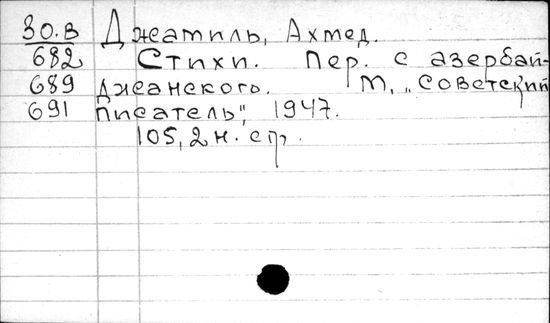 30.В Джамиль, Ахмед.
682 Стихи. Пер. с азербай-
689 джанского. М, „Советский
691 писатель", 1947.
105, 2 н. стр.